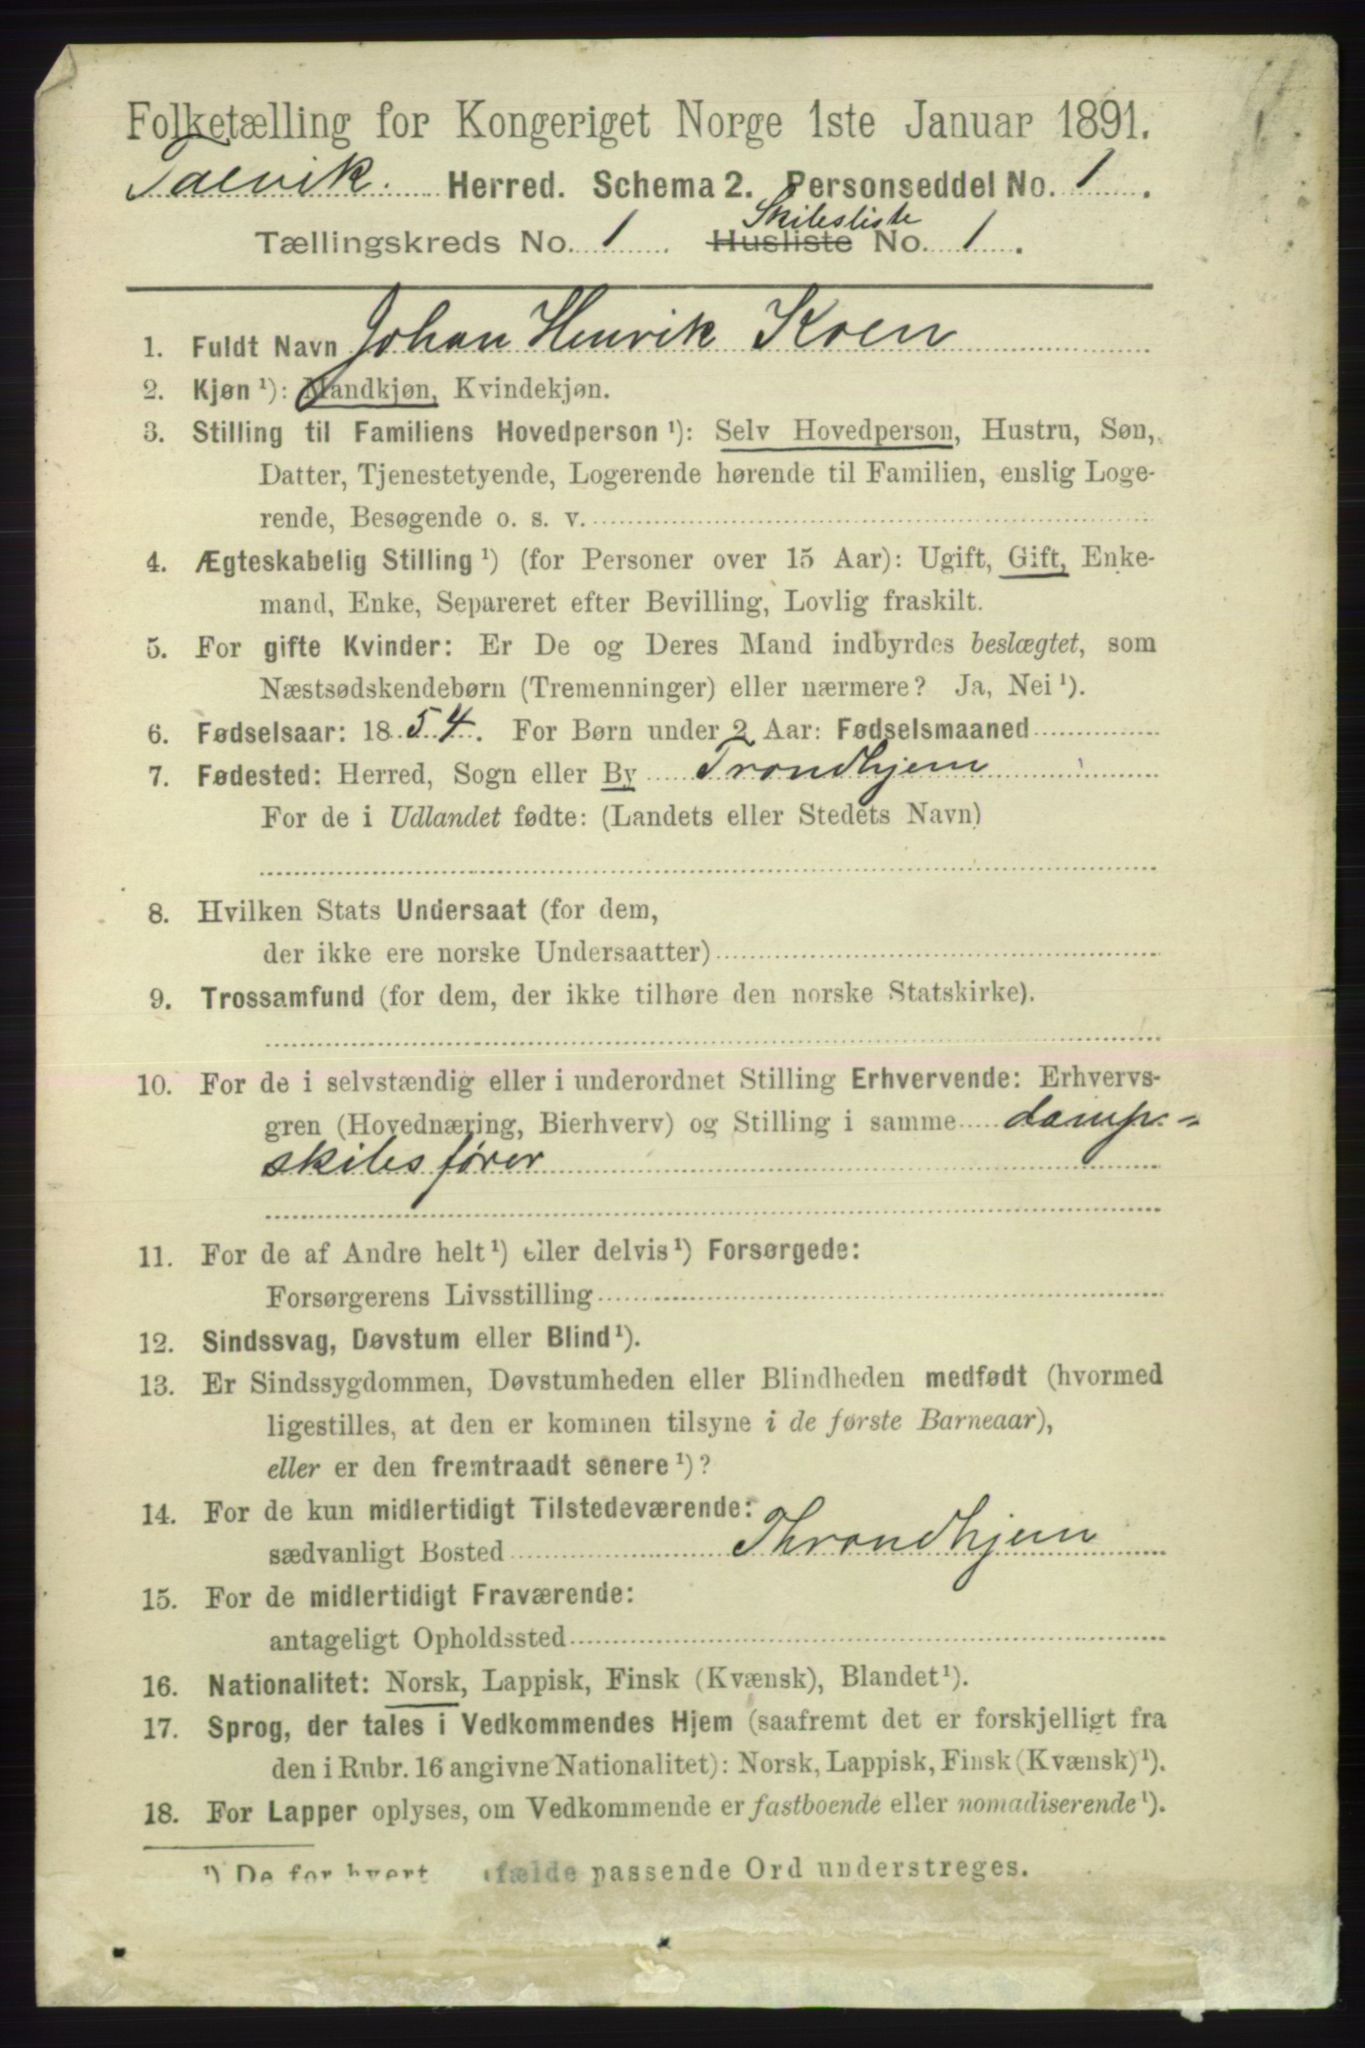 Folketælling for Kongeriget Norge 1ste Januar 1891.
Talvik. Herred. Schema 2. Personseddel No. 1.
Skibsliste
Tællingskreds No. 1 Husliste No. 1.
1. Fuldt Navn Johan Henrik Koen
2. Kjøn¹): Mandkjøn, Kvindekjøn.
3. Stilling til Familiens Hovedperson¹): Selv Hovedperson, Hustru, Søn,
Datter, Tjenestetyende, Logerende hørende til Familien, enslig Loge-
rende, Besøgende o. s. v.
4. Ægteskabelig Stilling¹) (for Personer over 15 Aar): Ugift, Gift, Enke-
mand, Enke, Separeret efter Bevilling, Lovlig fraskilt.
5. For gifte Kvinder: Er De og Deres Mand indbyrdes beslægtet, som
Næstsødskendebørn (Tremenninger) eller nærmere? Ja, Nei¹).
6. Fødselsaar: 1854. For Børn under 2 Aar: Fødselsmaaned
7. Fødested: Herred, Sogn eller By Trondhjem
For de i Udlandet fødte: (Landets eller Stedets Navn)
8. Hvilken Stats Undersaat (for dem,
der ikke ere norske Undersaatter)
9. Trossamfund (for dem, der ikke tilhøre den norske Statskirke).
10. For de i selvstændig eller i underordnet Stilling Erhvervende: Erhvervs-
gren (Hovednæring, Bierhverv) og Stilling i samme damp=
skibsfører
11. For de af Andre helt¹) eller delvis¹) Forsørgede:
Forsørgerens Livsstilling
12. Sindssvag, Døvstum eller Blind¹).
13. Er Sindssygdommen, Døvstumheden eller Blindheden medfødt (hvormed
ligestilles, at den er kommen tilsyne i de første Barneaar),
eller er den fremtraadt senere¹)?
14. For de kun midlertidigt Tilstedeværende:
sædvanligt Bosted Throndhjem
15. For de midlertidigt Fraværende:
antageligt Opholdssted
16. Nationalitet: Norsk, Lappisk, Finsk (Kvænsk), Blandet¹).
17. Sprog, der tales i Vedkommendes Hjem (saafremt det er forskjelligt fra
den i Rubr. 16 angivne Nationalitet): Norsk, Lappisk, Finsk (Kvænsk)¹).
18. For Lapper oplyses, om Vedkommende er fastboende eller nomadiserende¹).
¹) De for hvert fælde passende Ord understreges.